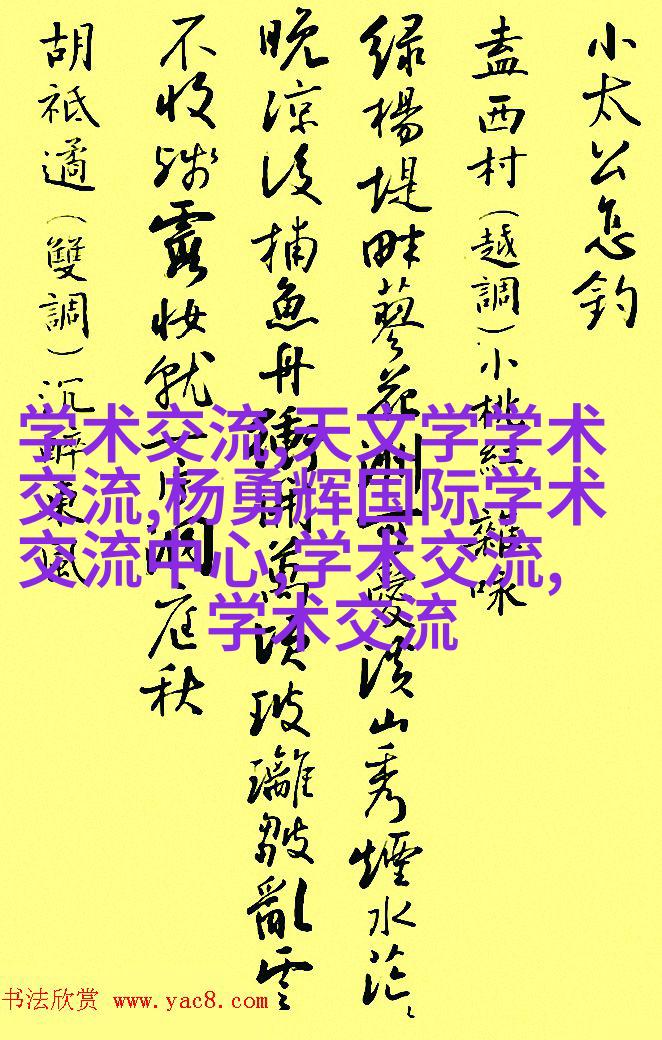 小太公怎釣
盍西村（越調）小桃紅 雜詠
綠楊堤畔蓼花洲
愛溪山秀煙水茫
晚涼後捕魚舟衝開萬頃玻瓈皺亂雲
不收殘霞妝就一片洞庭秋
胡祗遹（雙調）沉醉東風
学术交流,天文学学术
交流,杨勇辉国际学术
交流中心,学术交流,
学术交流
书法欣赏 www.yac8.com